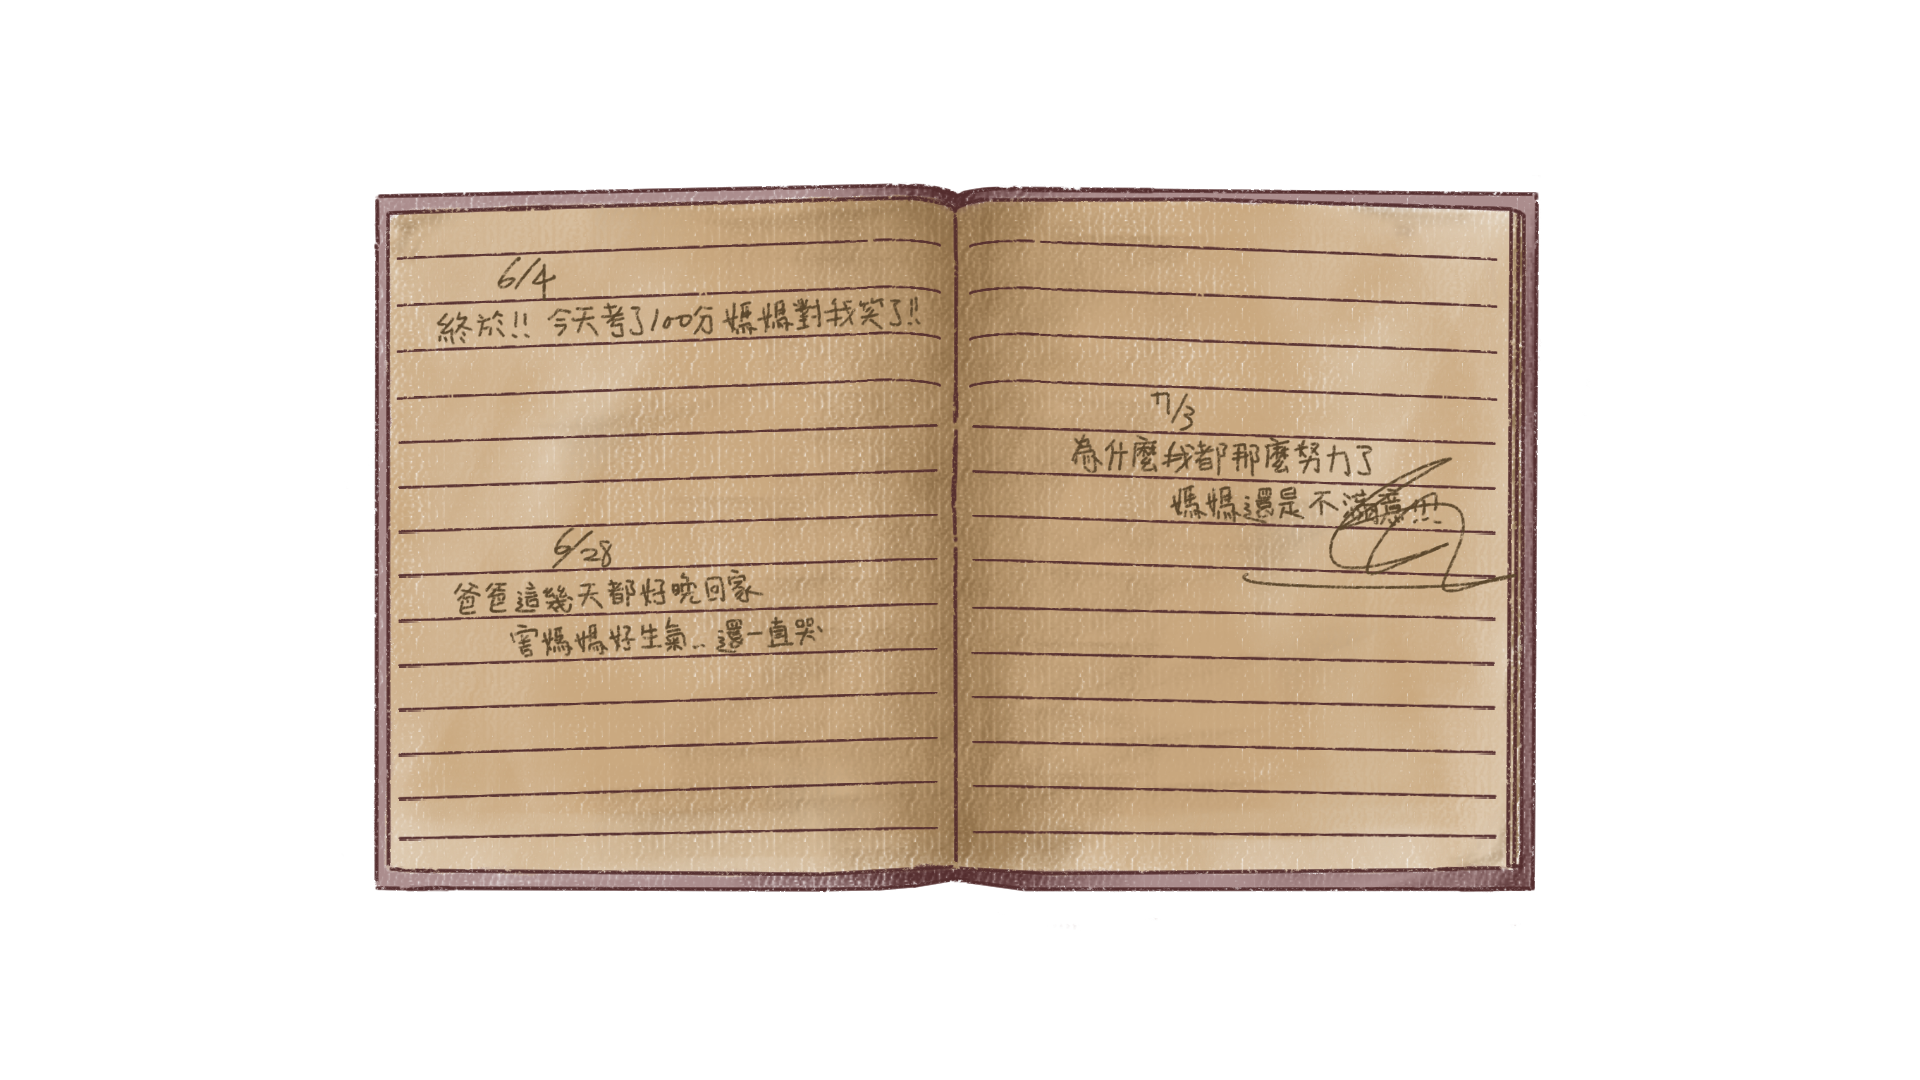 6/4
終於!! 今天考了100分 媽媽對我笑了!!
6/28
爸爸這幾天都好晚回家
害媽媽好生氣..還一直哭
7/3
為什麼我都那麼努力了
媽媽還是不滿意!!!